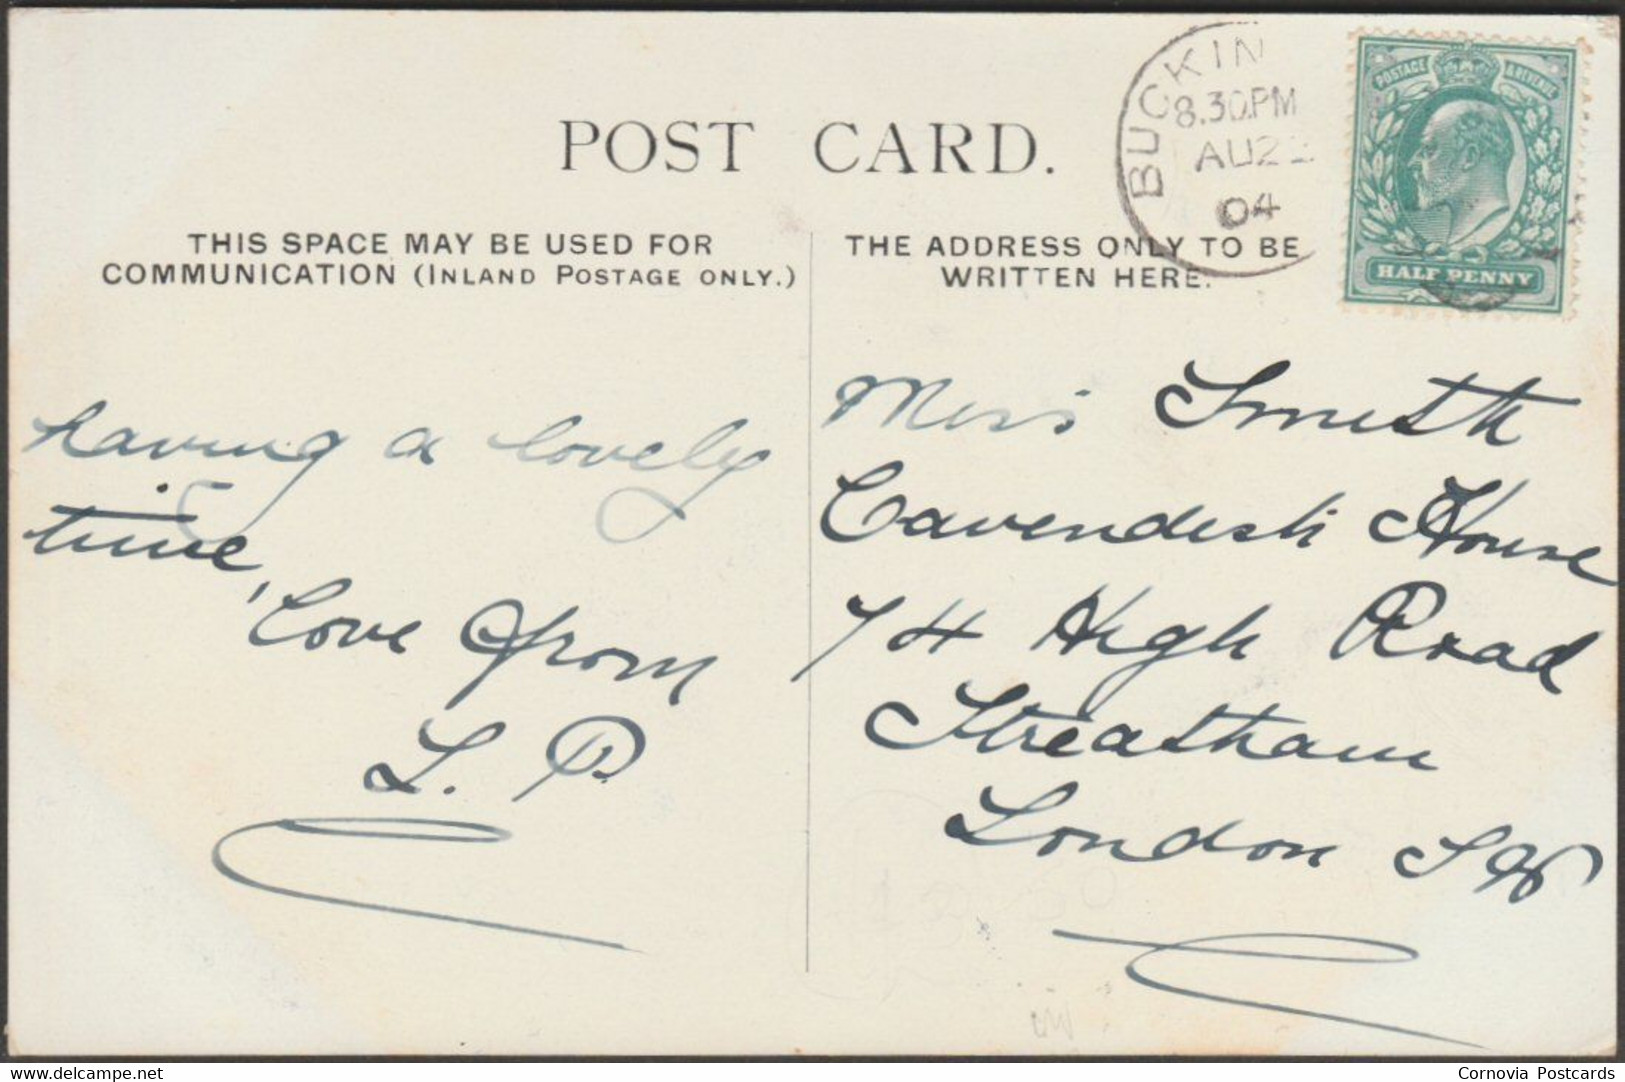 POST CARD.
BUCKIN
8.30.PM
AU22
04
POSTAGE & REVENUE
HALF PENNY
THIS SPACE MAY BE USED FOR
COMMUNICATION (INLAND POSTAGE ONLY.)
THE ADDRESS ONLY TO BE
WRITTEN HERE.
having a lovely
time,
Love from
L. P.
Miss Smith
Cavendish House
74 High Road
Streatham
London S W
delcampe.net
Cornovia Postcards